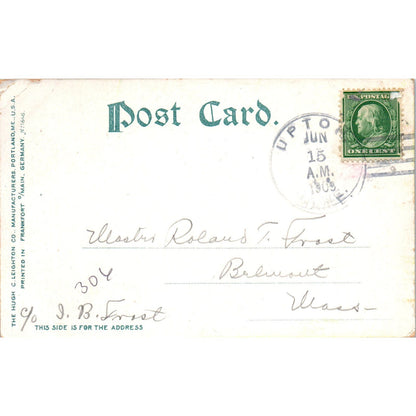 Post Card.
U.S. POSTAGE
ONE CENT
UPTON
JUN
15
A.M.
1909
Master Roland T. Frost
Belmont
Mass-
304
c/o I. B. Frost
THIS SIDE IS FOR THE ADDRESS
THE HUGH C. LEIGHTON CO., MANUFACTURERS, PORTLAND, ME., U.S.A.
PRINTED IN FRANKFORT o/MAIN, GERMANY.